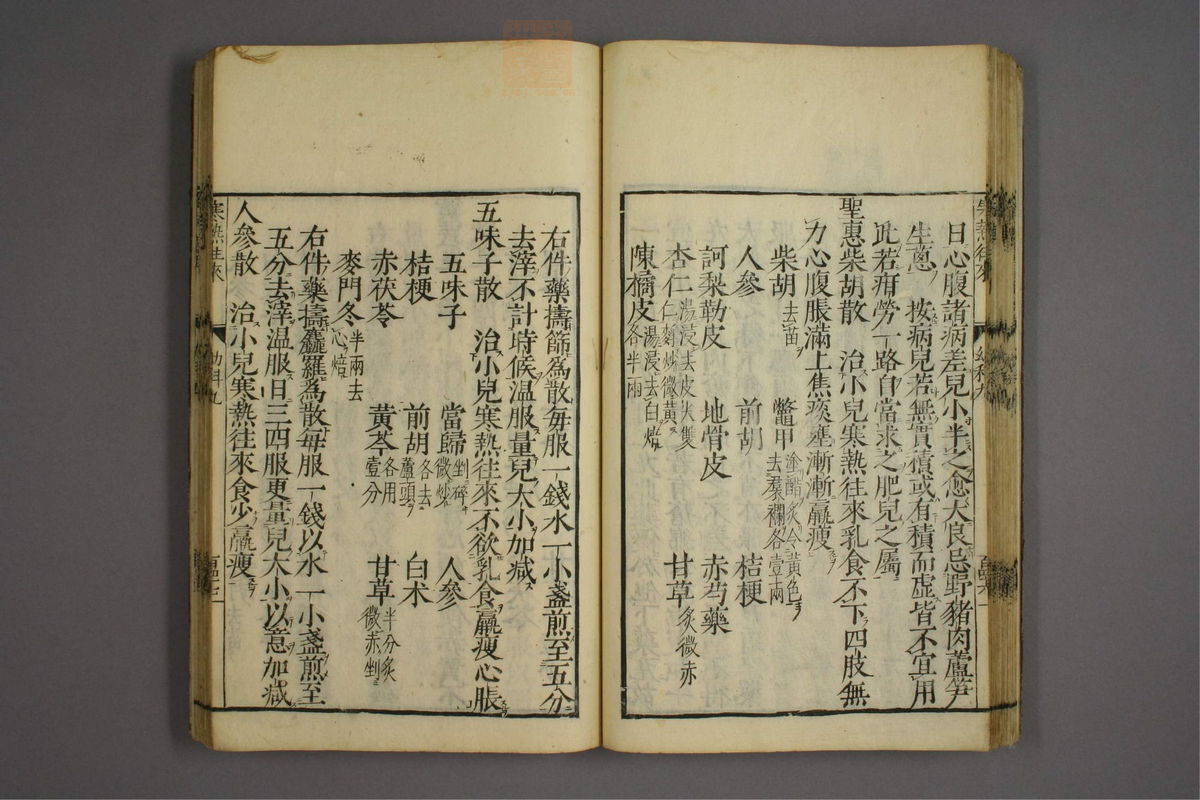 日心腹諸病差兒小半之愈大良忌野豬肉蘆笋
生蔥 按病兒若無實積或有積而虛皆不宜用
此若疳勞一路自當求之肥兒之屬
聖惠柴胡散 治小兒寒熱往來乳食不下四肢無
力心腹脹滿上焦痰壅漸漸羸瘦
柴胡去苗 鱉甲塗醋炙令黃色去裙襴各壹兩
人參 前胡 桔梗
訶梨勒皮 地骨皮 赤芍藥
杏仁湯浸去皮尖雙仁麩炒微黃 甘草炙微赤
陳橘皮湯浸去白焙各半兩
右件藥擣篩為散每服一錢水一小盞煎至五分
去滓不計時候溫服量兒大小加減
五味子散 治小兒寒熱往來不欲乳食羸瘦心脹
五味子 當歸剉碎微炒 人參
桔梗 前胡各去蘆頭 白朮
赤茯苓 黃芩各用壹分 甘草半分炙微赤剉
麥門冬半兩去心焙
右件藥擣麤羅為散每服一錢以水一小盞煎至
五分去滓溫服日三四服更量兒大小以意加減
人參散 治小兒寒熱往來食少羸瘦
寒熱往來 幼科九